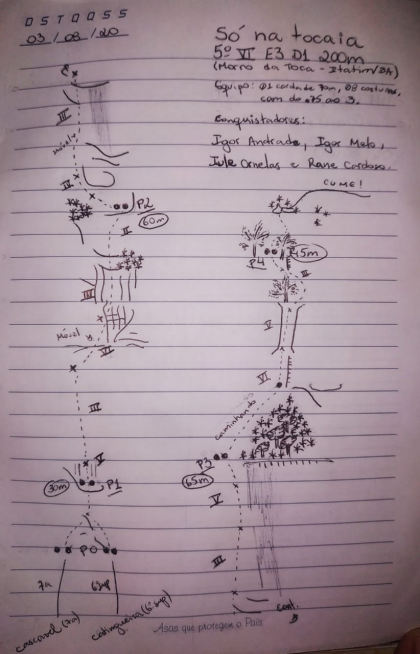 D S T Q Q S S
03 / 08 / 20
Só na tocaia
5º VI E3 D1 200m
(Morro da Toca - Itatim/BA)
Equipo: 01 corda de 70m, 08 costuras,
cam do .75 ao 3.
Conquistadores:
Igor Andrade, Igor Melo,
Iule Ornelas e Rene Cardoso.
III
Móvel
IV
P2
60m
II
III
Móvel
VI
III
V
30m
P1
P0
7a
6sup
cascavel (7a)
catingueira (6ºsup)
CUME!
P4
45m
II
V
VI
Caminhando
P3
65m
V
III
cont.
Asas que protegem o País